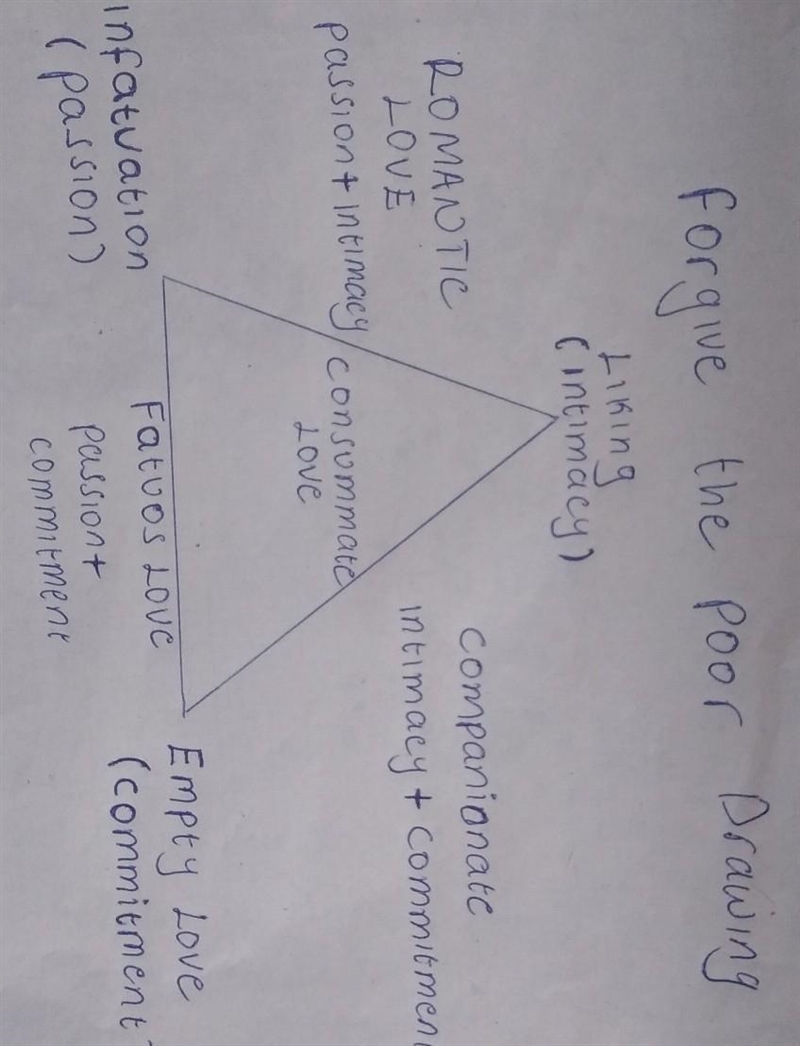 Forgive the poor Drawing
Liking
(intimacy)
ROMANTIC
LOVE
passion + intimacy
companionate
intimacy + commitmen
consummate
Love
infatuation
(passion)
Fatuos Love
passion +
commitment
Empty Love
(commitment